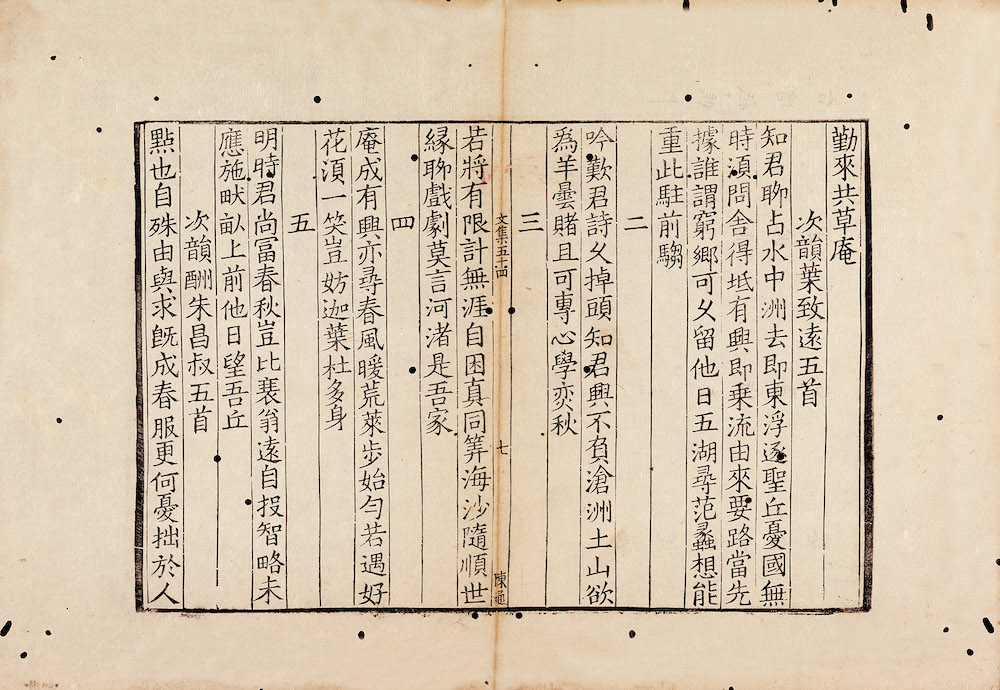 勤來共草庵
次韻葉致遠五首
知君聊占水中洲去即東浮逐聖丘憂國無
時須問舍得坻有興即乗流由來要路當先
據誰謂窮鄉可久留他日五湖尋范蠡想能
重此駐前騶
二
吟歎君詩久掉頭知君興不負滄洲土山欲
爲羊曇賭且可專心學奕秋
三
文集五十四
七
陳通
若將有限計無涯自困真同筭海沙隨順世
縁聊戲劇莫言河渚是吾家
四
庵成有興亦尋春風暖荒萊步始勻若遇好
花湏一笑豈妨迦葉杜多身
五
明時君尚冨春秋豈比衰翁遠自投智略未
應施畎畝上前他日望吾丘
次韻酬朱昌叔五首
點也自殊由與求旣成春服更何憂拙於人